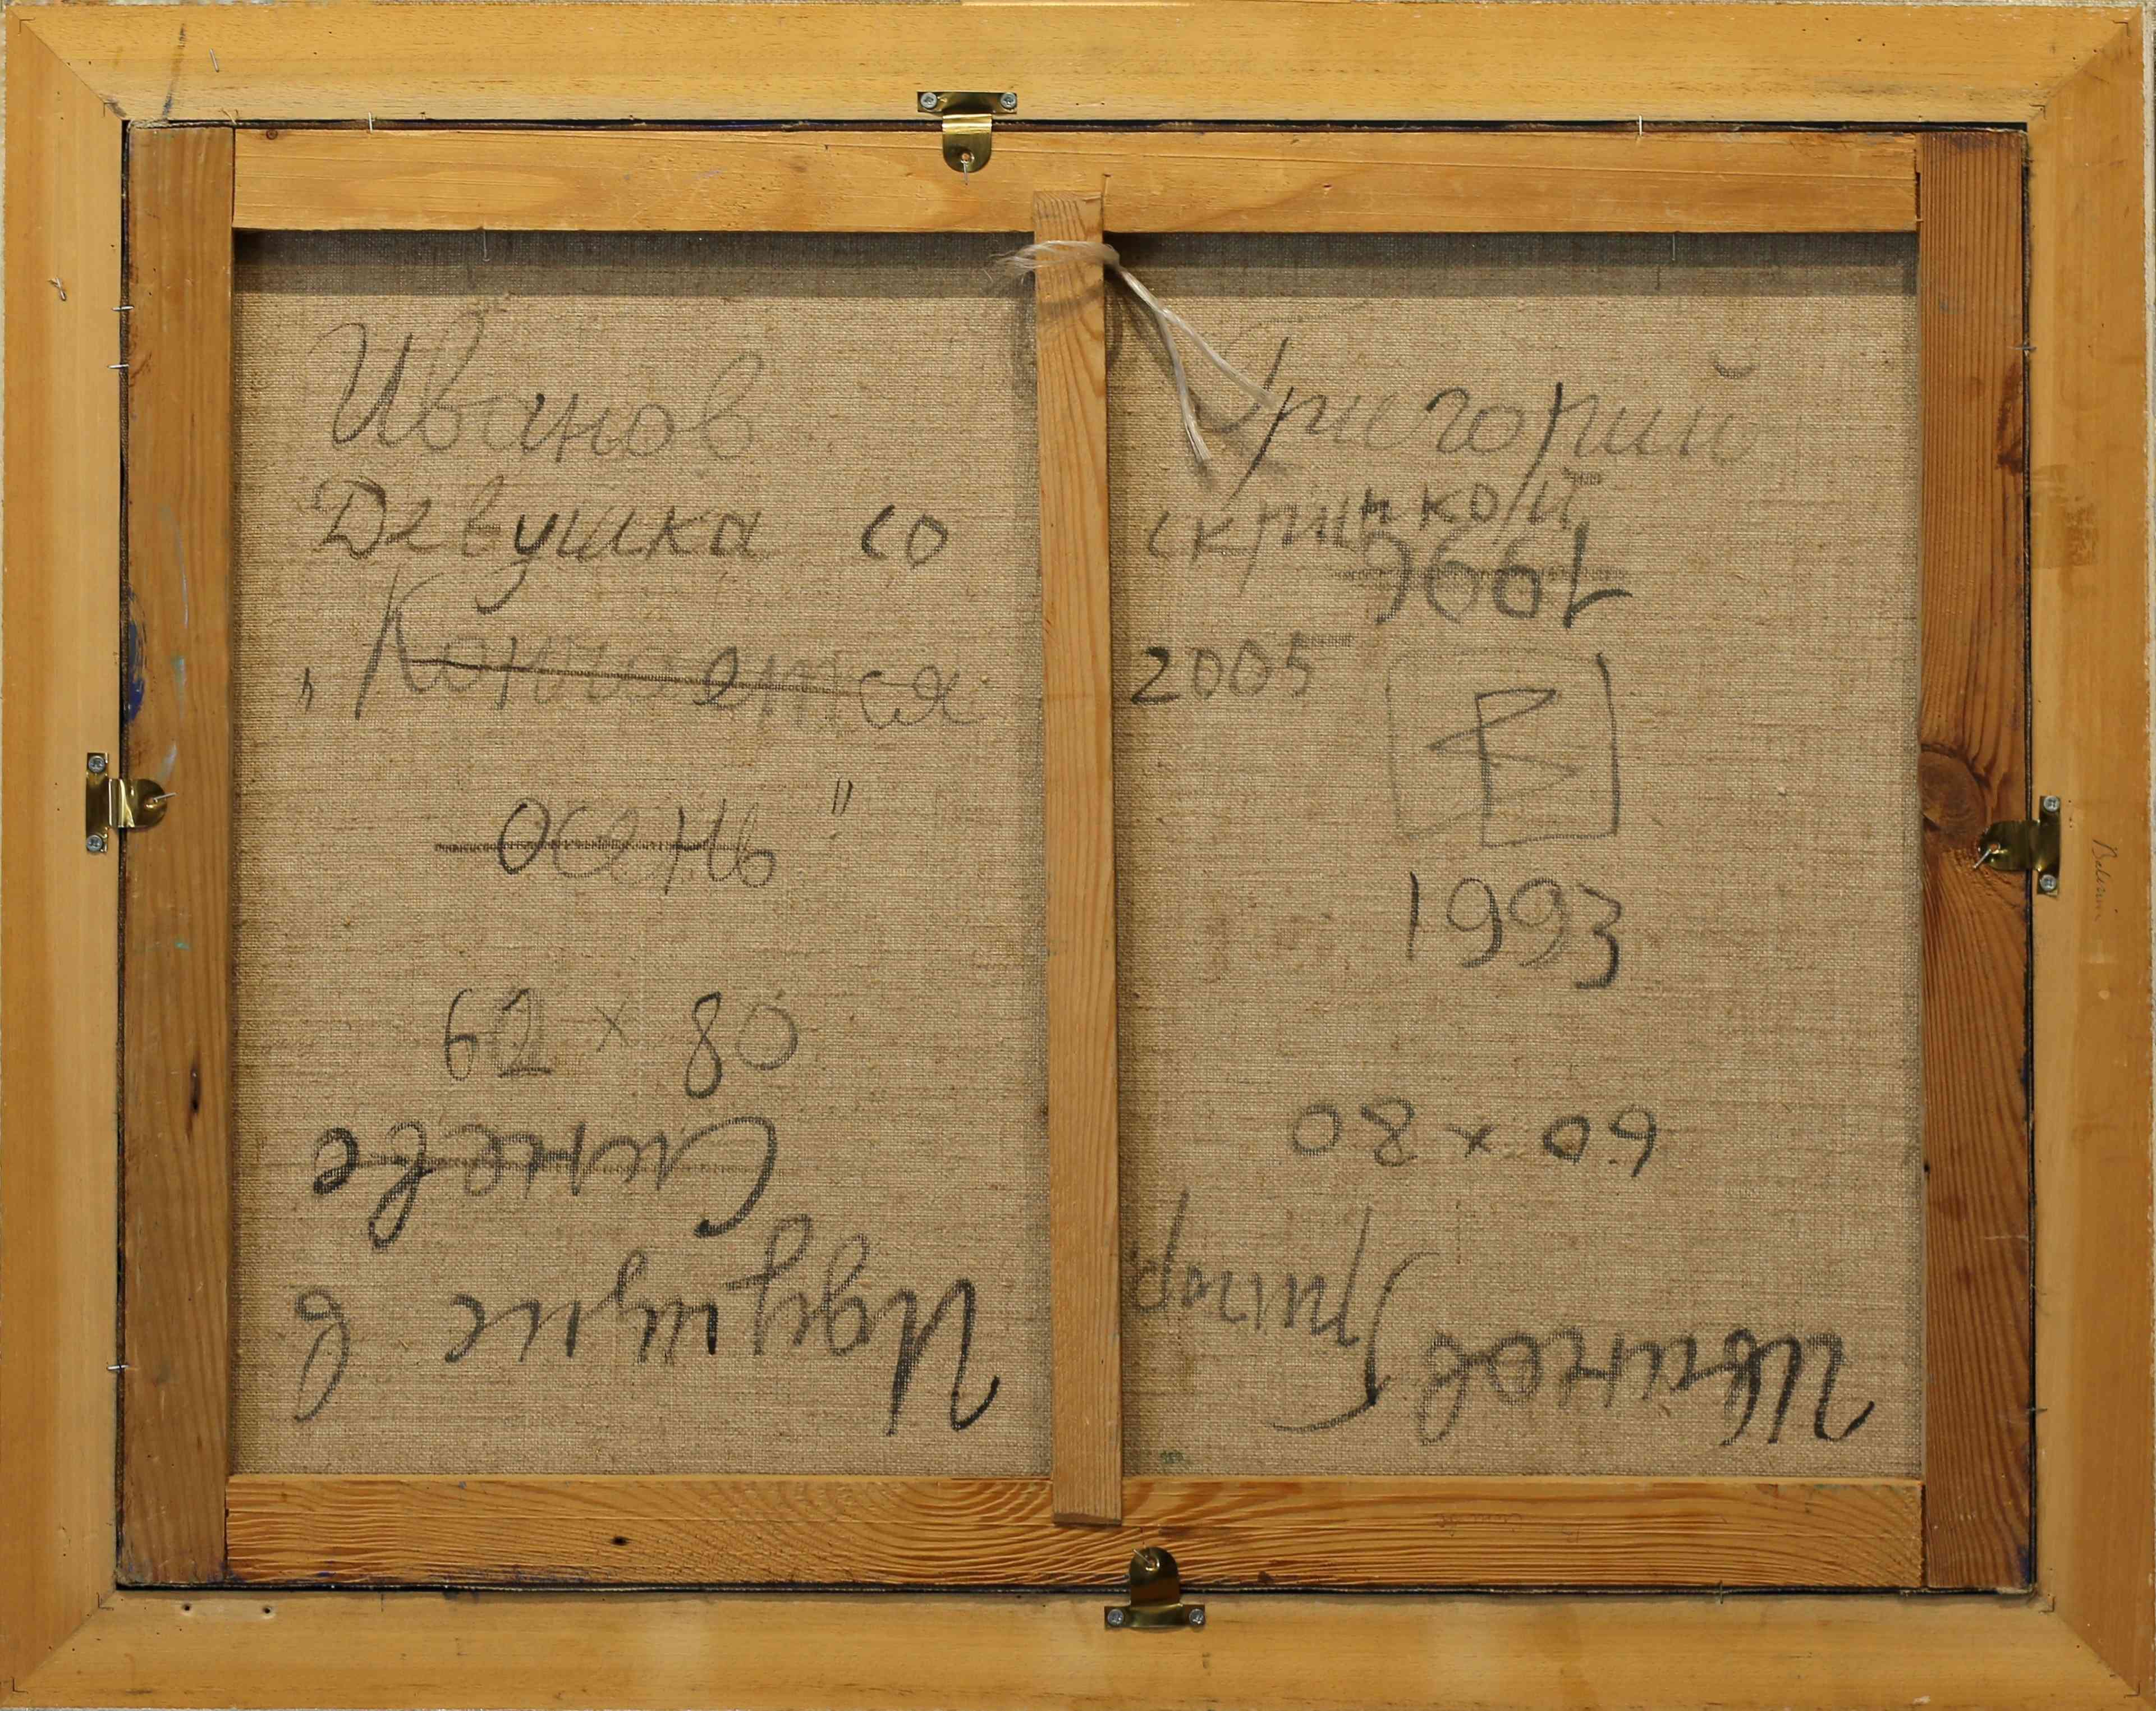 Иванов Григорий
Девушка со скрипкой
1996
"Кончается 2005
осень"
1993
62 x 80
60 x 80
Иванов Григор
Идущие в
Синеве